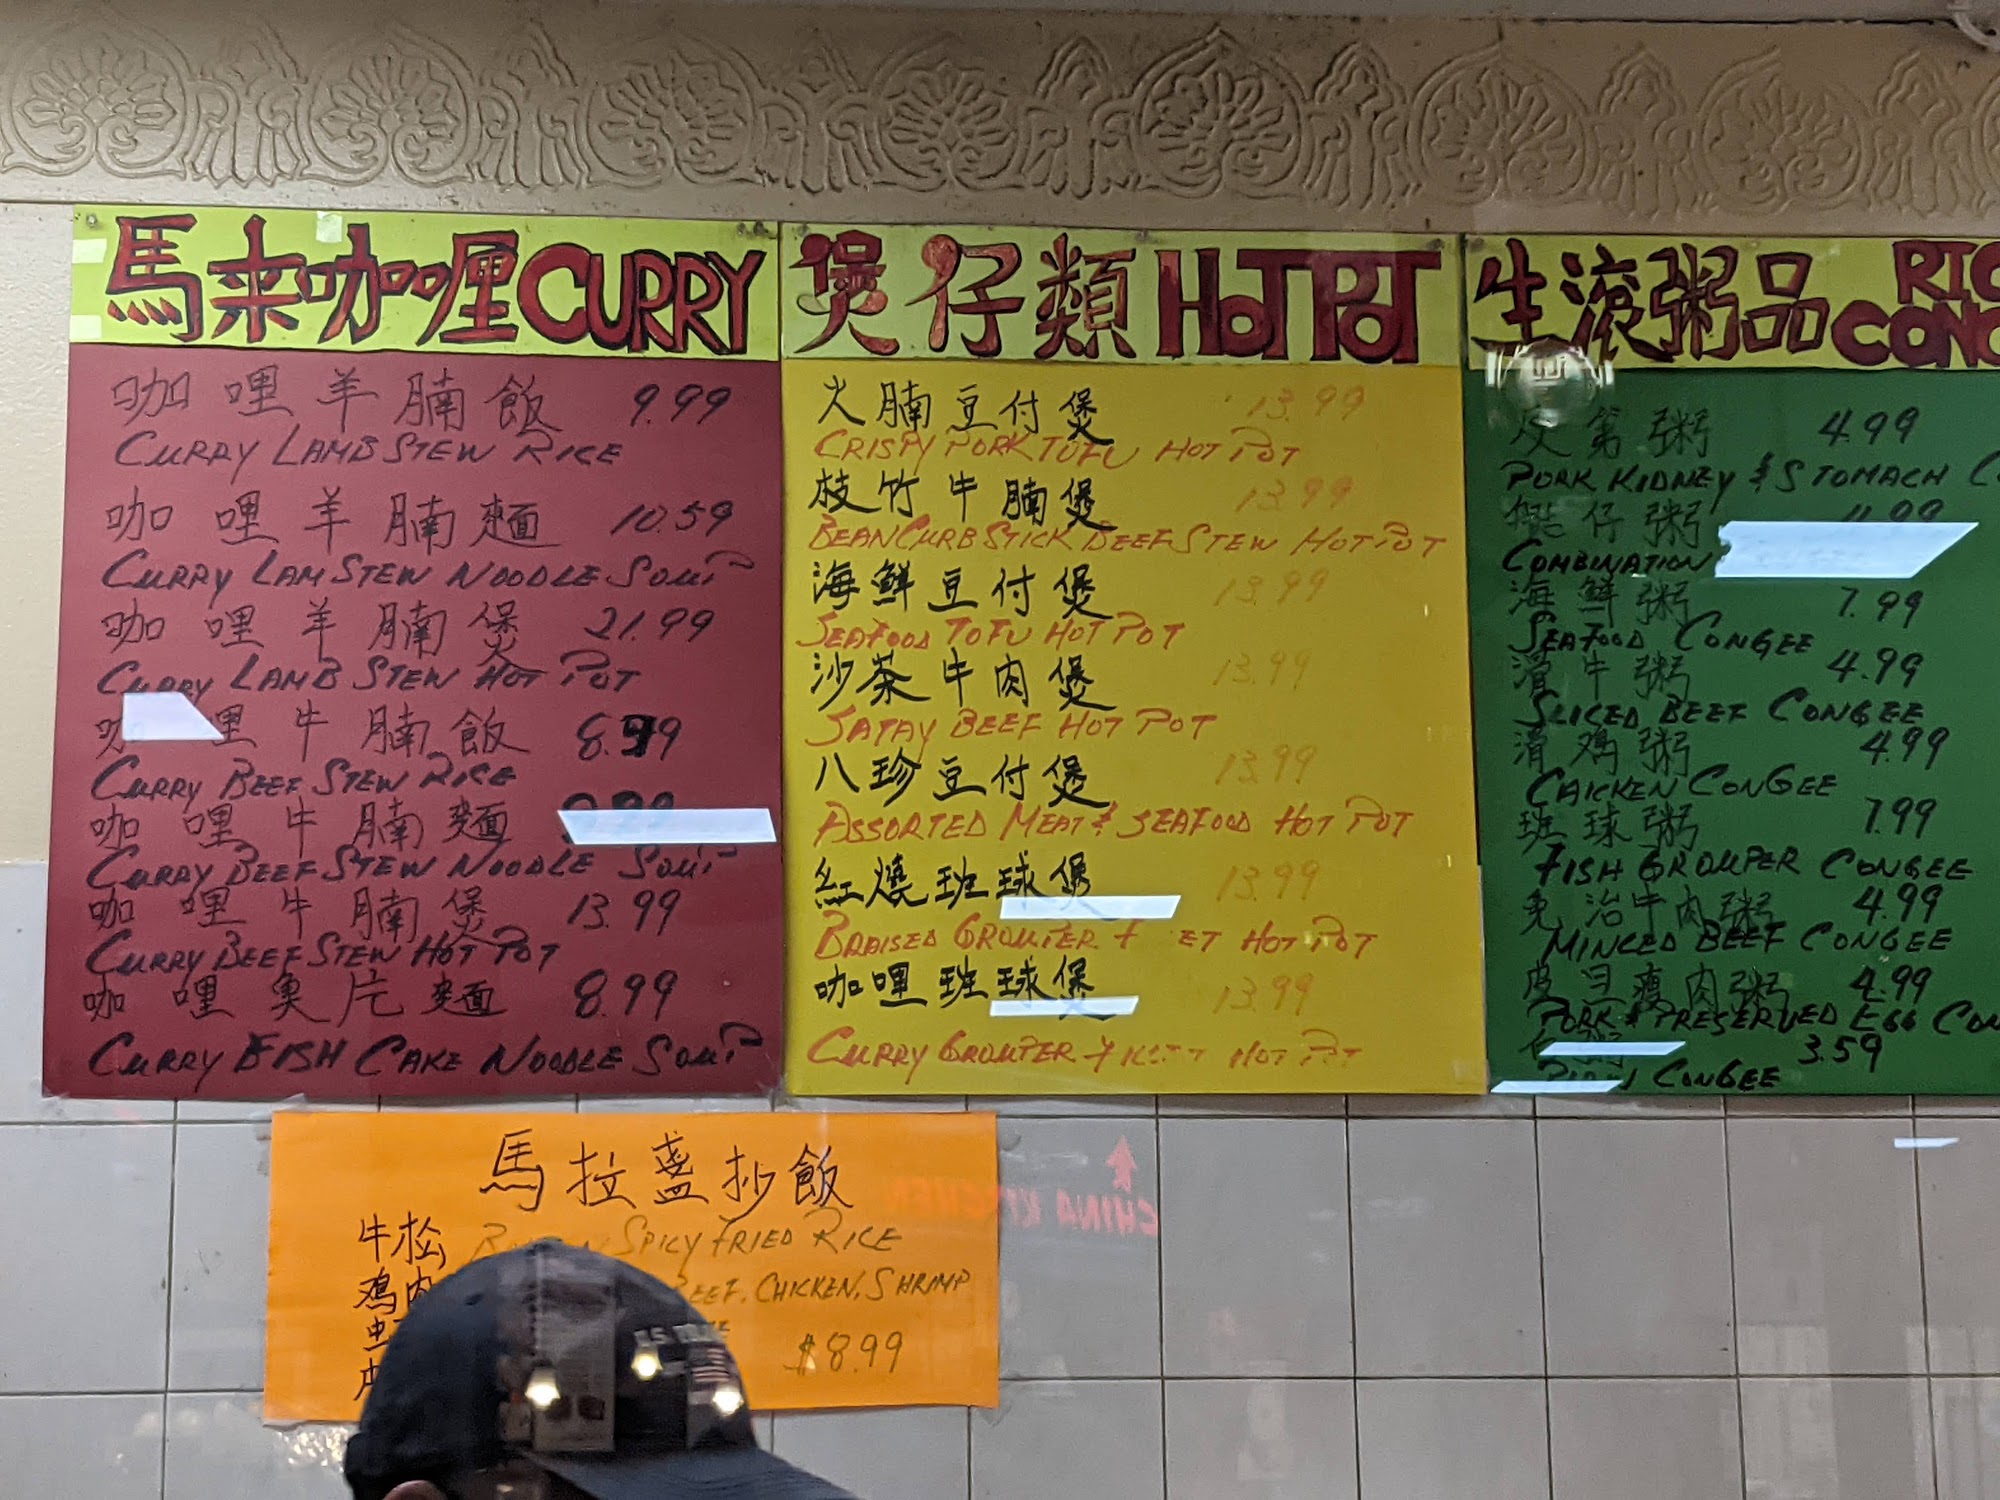 馬来咖喱 CURRY
咖哩羊腩飯 9.99
CURRY LAMB STEW RICE
咖哩羊腩麵 10.59
CURRY LAM STEW NOODLE SOUP
咖哩羊腩煲 21.99
CURRY LAMB STEW HOT POT
咖哩牛腩飯 8.99
CURRY BEEF STEW RICE
咖哩牛腩麵
CURRY BEEF STEW NOODLE SOUP
咖哩牛腩煲 13.99
CURRY BEEF STEW HOT POT
咖哩魚片麵 8.99
CURRY FISH CAKE NOODLE SOUP
煲仔類 HOT POT
火腩豆付煲 13.99
CRISPY PORK TOFU HOT POT
枝竹牛腩煲 13.99
BEAN CURB STICK BEEF STEW HOT POT
海鮮豆付煲 13.99
SEAFOOD TOFU HOT POT
沙茶牛肉煲 13.99
SATAY BEEF HOT POT
八珍豆付煲 13.99
ASSORTED MEAT & SEAFOOD HOT POT
紅燒班球煲 13.99
BRAISED GROUPER HOT POT
咖哩班球煲 13.99
CURRY GROUPER HOT POT
生滾粥品
粥 4.99
PORK KIDNEY & STOMACH
仔粥 4.99
COMBINATION
海鮮粥 7.99
SEAFOOD CONGEE
滑牛粥 4.99
SLICED BEEF CONGEE
滑鸡粥 4.99
CHICKEN CONGEE
班球粥 7.99
FISH GROUPER CONGEE
免治牛肉粥 4.99
MINCED BEEF CONGEE
皮旦瘦肉粥 4.99
PORK & PRESERVED EGG
3.59
CONGEE
馬拉盞抄飯
牛松 SPICY FRIED RICE
鸡肉 CHICKEN, SHRIMP
$8.99
CHINA KITCHEN